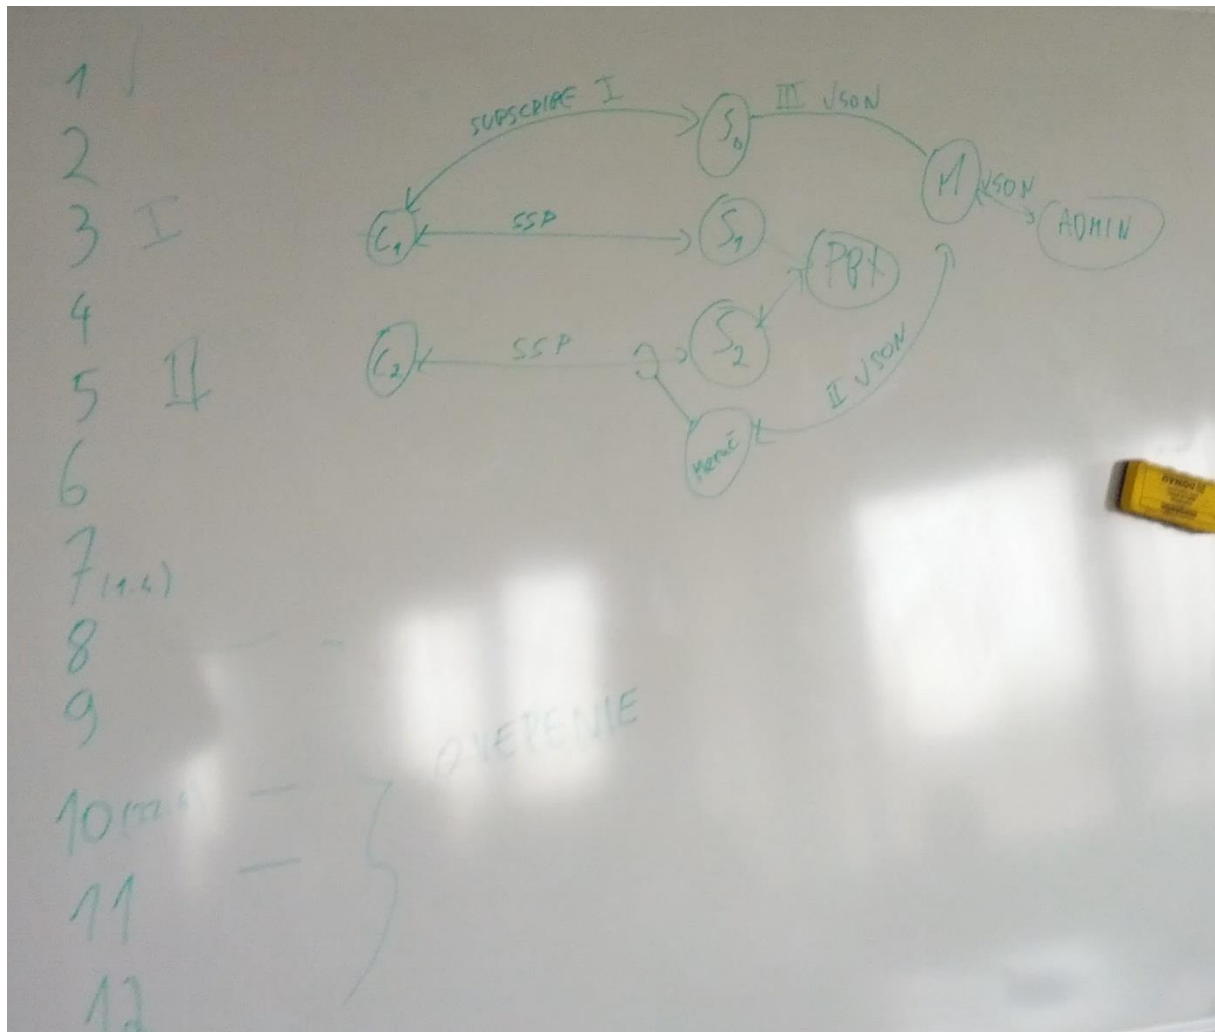 1 √
2
3 I
4
5 II
6
7 (1.4)
8
9
10
11
12
OVERENIE
SUBSCRIBE I
S₀
III JSON
M
JSON
ADMIN
C₁
SSP
S₁
PBX
C₂
SSP
S₂
II JSON
Merač